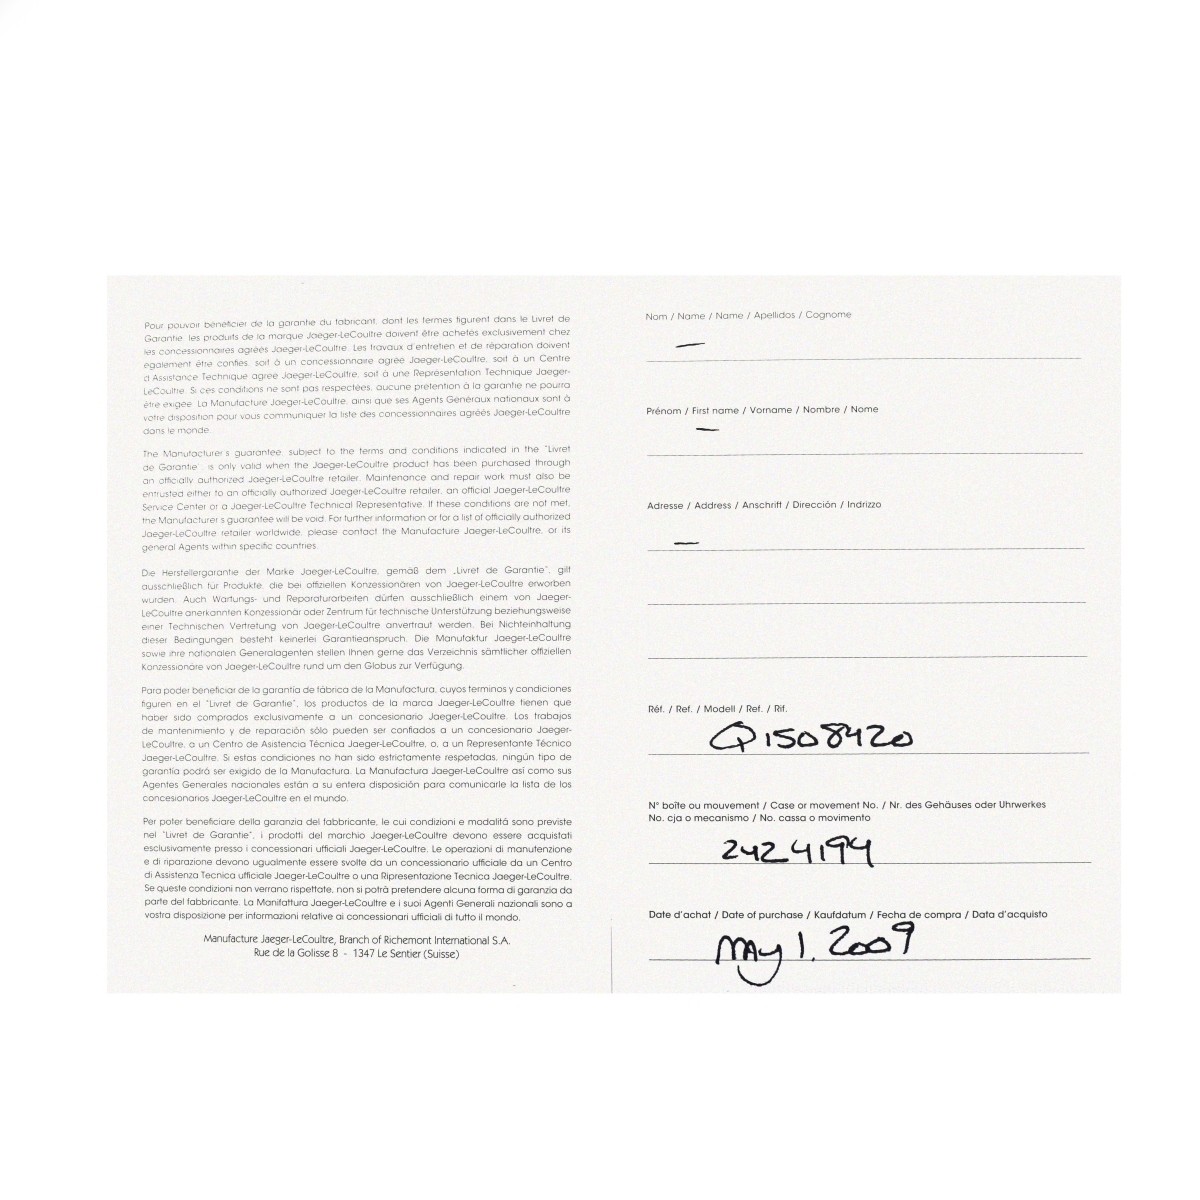 Pour pouvoir bénéficier de la garantie du fabricant, dont les termes figurent dans le Livret de
Garantie, les produits de la marque Jaeger-LeCoultre doivent être achetés exclusivement chez
les concessionnaires agréés Jaeger-LeCoultre. Les travaux d'entretien et de réparation doivent
également être confiés, soit à un concessionnaire agréé Jaeger-LeCoultre, soit à un Centre
d'Assistance Technique agréé Jaeger-LeCoultre, soit à une Représentation Technique Jaeger-
LeCoultre. Si ces conditions ne sont pas respectées, aucune prétention à la garantie ne pourra
être exigée. La Manufacture Jaeger-LeCoultre, ainsi que ses Agents Généraux nationaux sont à
votre disposition pour vous communiquer la liste des concessionnaires agréés Jaeger-LeCoultre
dans le monde.
The Manufacturer's guarantee, subject to the terms and conditions indicated in the "Livret
de Garantie", is only valid when the Jaeger-LeCoultre product has been purchased through
an officially authorized Jaeger-LeCoultre retailer. Maintenance and repair work must also be
entrusted either to an officially authorized Jaeger-LeCoultre retailer, an official Jaeger-LeCoultre
Service Center or a Jaeger-LeCoultre Technical Representative. If these conditions are not met,
the Manufacturer's guarantee will be void. For further information or for a list of officially authorized
Jaeger-LeCoultre retailer worldwide, please contact the Manufacture Jaeger-LeCoultre, or its
general Agents within specific countries.
Die Herstellergarantie der Marke Jaeger-LeCoultre, gemäß dem „Livret de Garantie", gilt
ausschließlich für Produkte, die bei offiziellen Konzessionären von Jaeger-LeCoultre erworben
wurden. Auch Wartungs- und Reparaturarbeiten dürfen ausschließlich einem von Jaeger-
LeCoultre anerkannten Konzessionär oder Zentrum für technische Unterstützung beziehungsweise
einer Technischen Vertretung von Jaeger-LeCoultre anvertraut werden. Bei Nichteinhaltung
dieser Bedingungen besteht keinerlei Garantieanspruch. Die Manufaktur Jaeger-LeCoultre
sowie ihre nationalen Generalagenten stellen Ihnen gerne das Verzeichnis sämtlicher offiziellen
Konzessionäre von Jaeger-LeCoultre rund um den Globus zur Verfügung.
Para poder beneficiar de la garantía de fábrica de la Manufactura, cuyos terminos y condiciones
figuren en el "Livret de Garantie", los productos de la marca Jaeger-LeCoultre tienen que
haber sido comprados exclusivamente a un concesionario Jaeger-LeCoultre. Los trabajos
de mantenimiento y de reparación sólo pueden ser confiados a un concesionario Jaeger-
LeCoultre, a un Centro de Asistencia Técnica Jaeger-LeCoultre, o, a un Representante Técnico
Jaeger-LeCoultre. Si estas condiciones no han sido estrictamente respetadas, ningún tipo de
garantía podrá ser exigido de la Manufactura. La Manufactura Jaeger-LeCoultre así como sus
Agentes Generales nacionales están a su entera disposición para comunicarle la lista de los
concesionarios Jaeger-LeCoultre en el mundo.
Per poter beneficiare della garanzia del fabbricante, le cui condizioni e modalità sono previste
nel "Livret de Garantie", i prodotti del marchio Jaeger-LeCoultre devono essere acquistati
esclusivamente presso i concessionari ufficiali Jaeger-LeCoultre. Le operazioni di manutenzione
e di riparazione devono ugualmente essere svolte da un concessionario ufficiale da un Centro
di Assistenza Tecnica ufficiale Jaeger-LeCoultre o una Ripresentazione Tecnica Jaeger-LeCoultre.
Se queste condizioni non verrano rispettate, non si potrà pretendere alcuna forma di garanzia da
parte del fabbricante. La Manifattura Jaeger-LeCoultre e i suoi Agenti Generali nazionali sono a
vostra disposizione per informazioni relative ai concessionari ufficiali di tutto il mondo.
Manufacture Jaeger-LeCoultre, Branch of Richemont International S.A.
Rue de la Golisse 8 - 1347 Le Sentier (Suisse)
Nom / Name / Name / Apellidos / Cognome
—
Prénom / First name / Vorname / Nombre / Nome
—
Adresse / Address / Anschrift / Dirección / Indrizzo
—
Réf. / Ref. / Modell / Ref. / Rif.
Q1508420
N° boîte ou mouvement / Case or movement No. / Nr. des Gehäuses oder Uhrwerkes
No. cja o mecanismo / No. cassa o movimento
2424194
Date d'achat / Date of purchase / Kaufdatum / Fecha de compra / Data d'acquisto
May 1, 2009